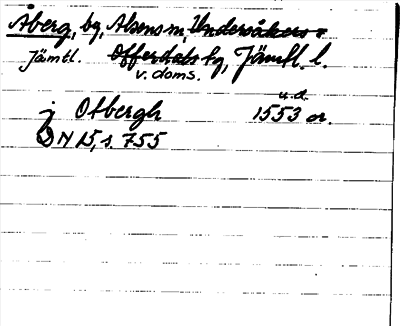 Åberg, by, Alsens sn, Undersåkers o
Jämtl. Offerdals tg, Jämtl. l.
v. doms.
u.d.
j Otbergh 1553 or.
N 15, s. 755